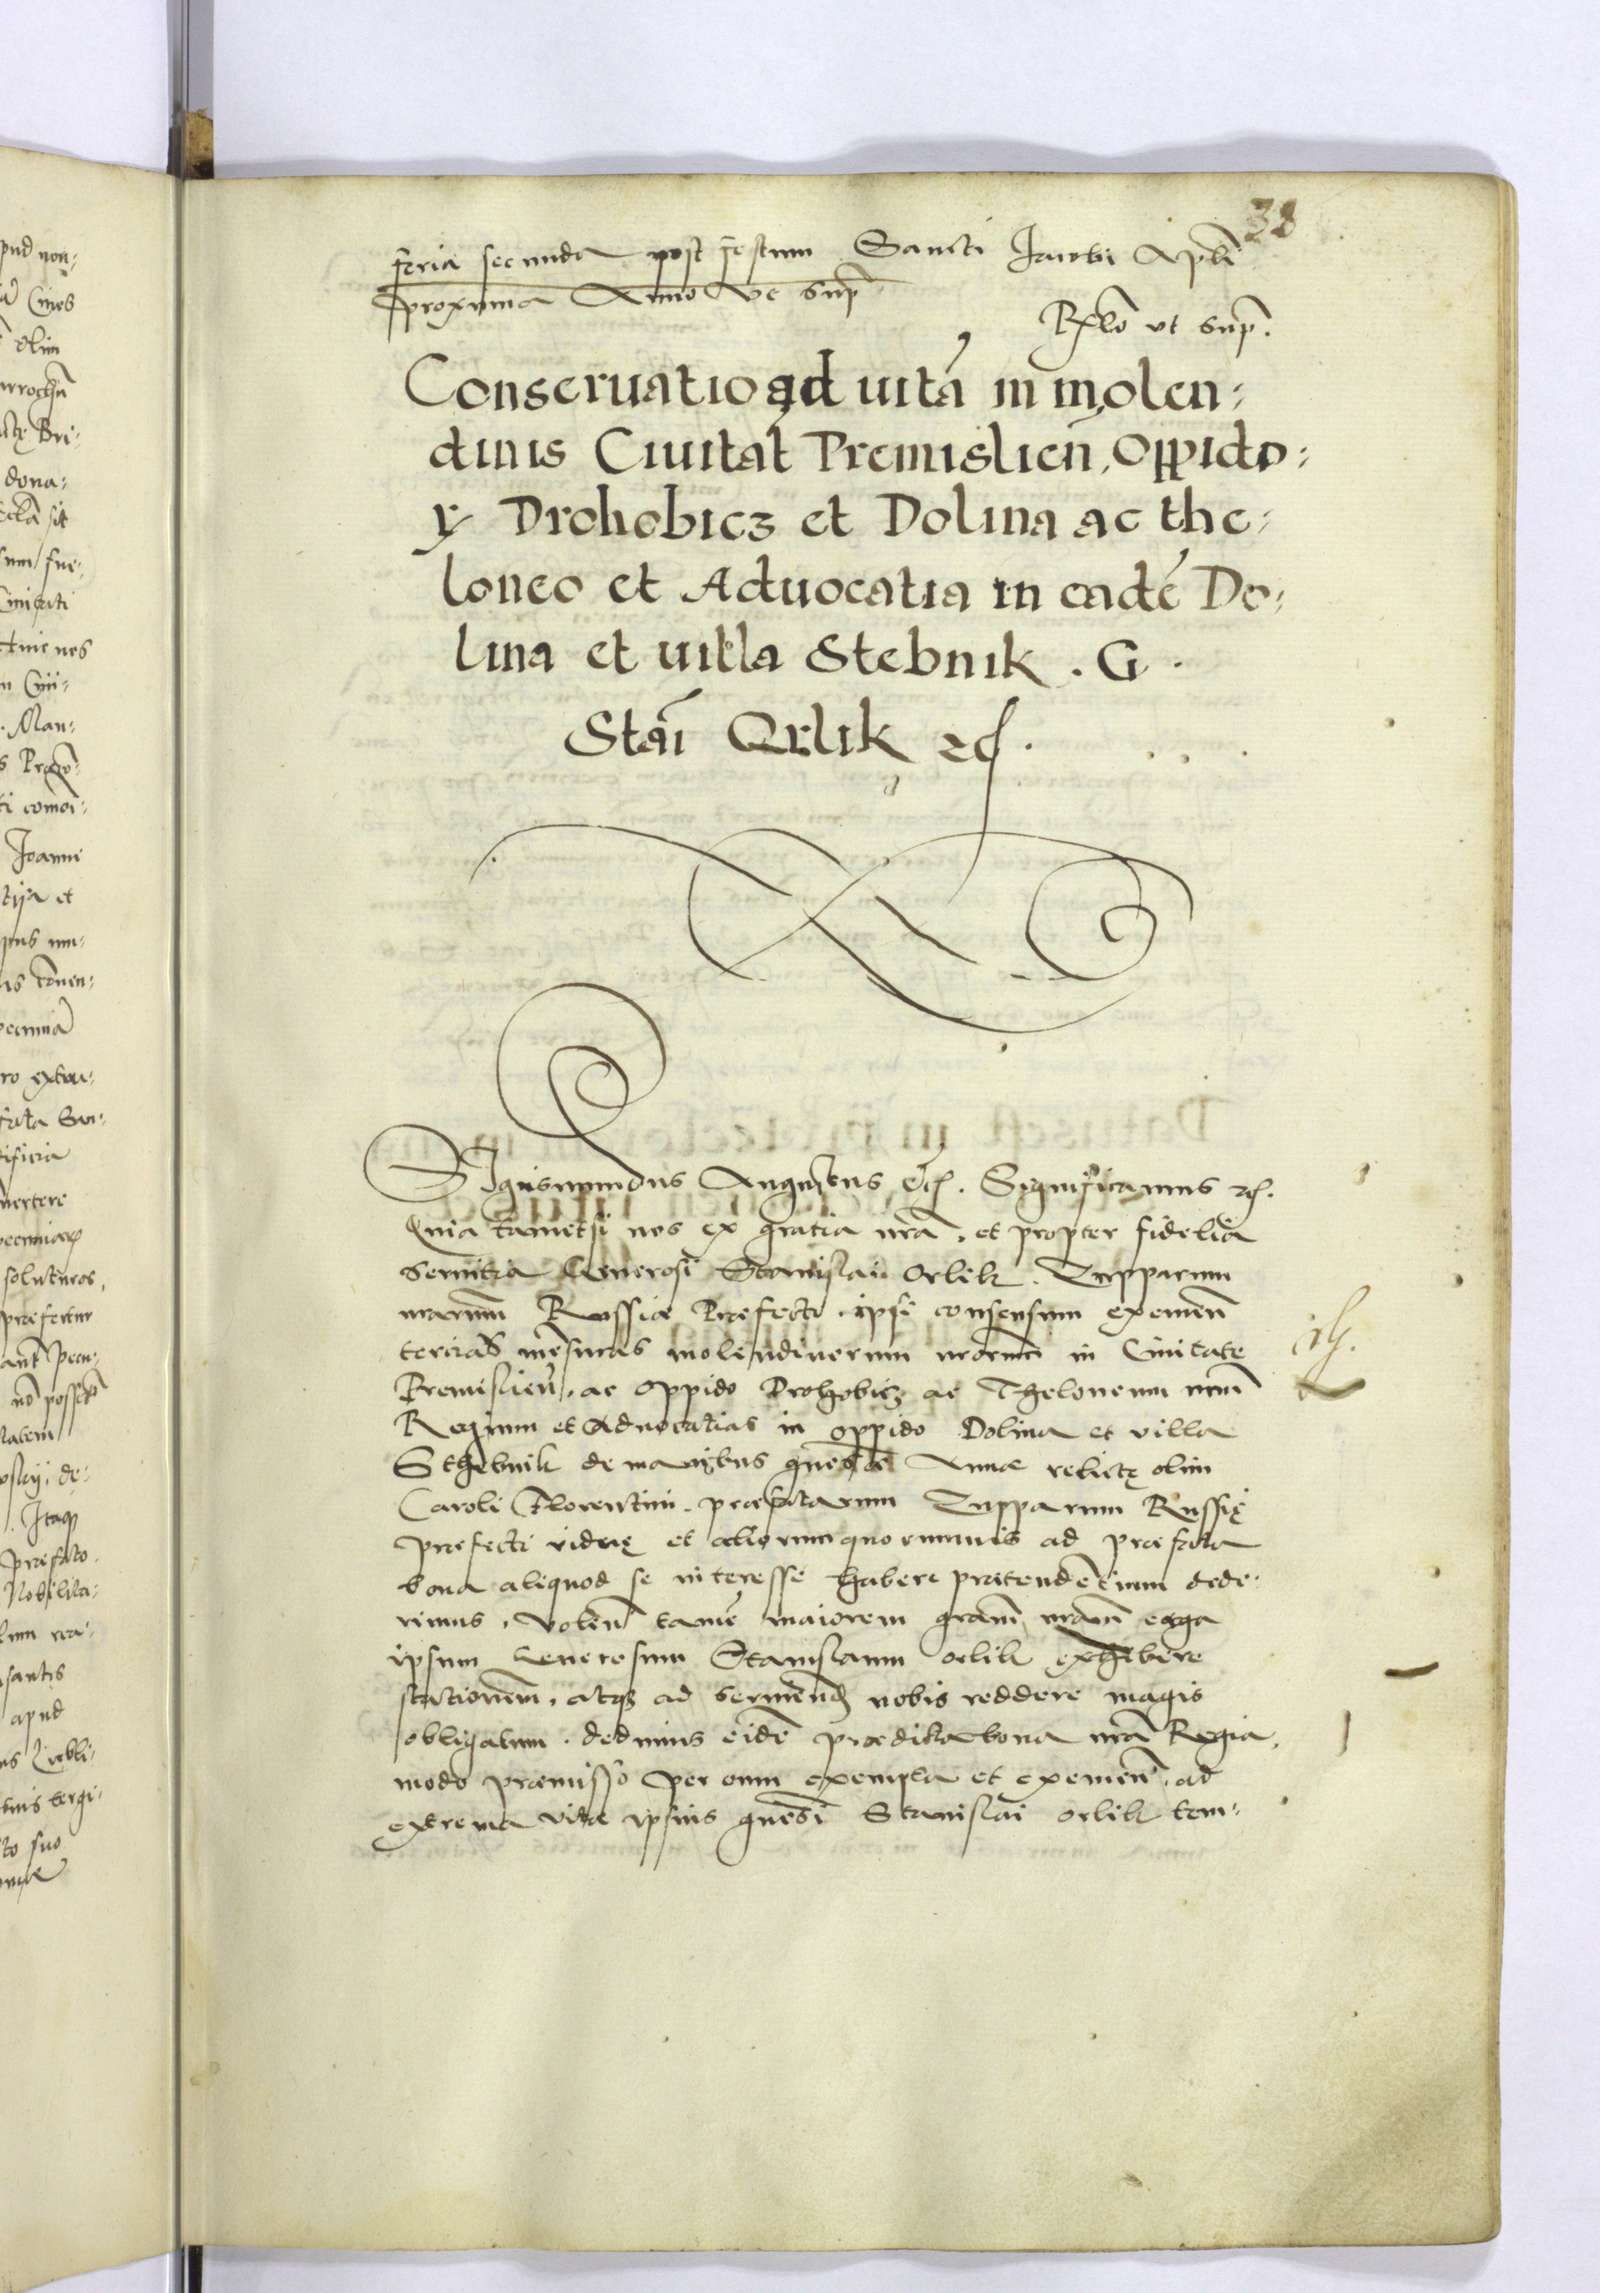 38
feria secunda post festum Sancti Jacobi Apli
proxima Anno ut sup
Rlo ut sup.
Conseruatio ad uitã in molen:
dinis Ciuitat Premislien̄, Oppido:
ꝝ Drohobicz et Dolina ac the:
loneo et Aduocatia in eadẽ Do:
lina et uilla Stebnik . G .
Stãi Orlik ec .
Sigismundus Augustus ec. Significamus ec.
Quia tametsi nos ex gratia nrã, et propter fidelia
seruitia Generosi Stanislai Orlik. Zupparum
nrarum Russiæ Præfecti. ipsi consensum eximen̄
tercias mẽsuras molendinorum nrorum in Ciuitate
Premislien̄, ac oppido Drohobicz ac Theloneum nrm̄
Regium et Aduocatias in oppido Dolina et villa
Sthebnik de manibus gnẽosæ Annæ relictę olim
Caroli Florentini. præfatarum Zupparum Russię
præfecti viduę et aliorum quorumuis ad præfata
bona aliquod se interesse habere prætendẽtium dede:
rimus. Volen̄ tamẽ maiorem gram̄ nram̄ erga
ipsum Generosum Stanislaum Orlik exhibere
atqȝ ad seruiend̄ nobis reddere magis
obligatum. dedimus eidẽ prædicta bona nrã Regia.
modo præmisso per eum exempta et eximen̄. ad
extrema vitæ ipsius gnẽosi Stanislai Orlik tem:
pud non:
olim
dona:
Man:
Joanni
ijs et
pecunia
mertere
soluturos,
præfertur
nõ
Itaqȝ
Præfato
Nobilita:
apud
to suo